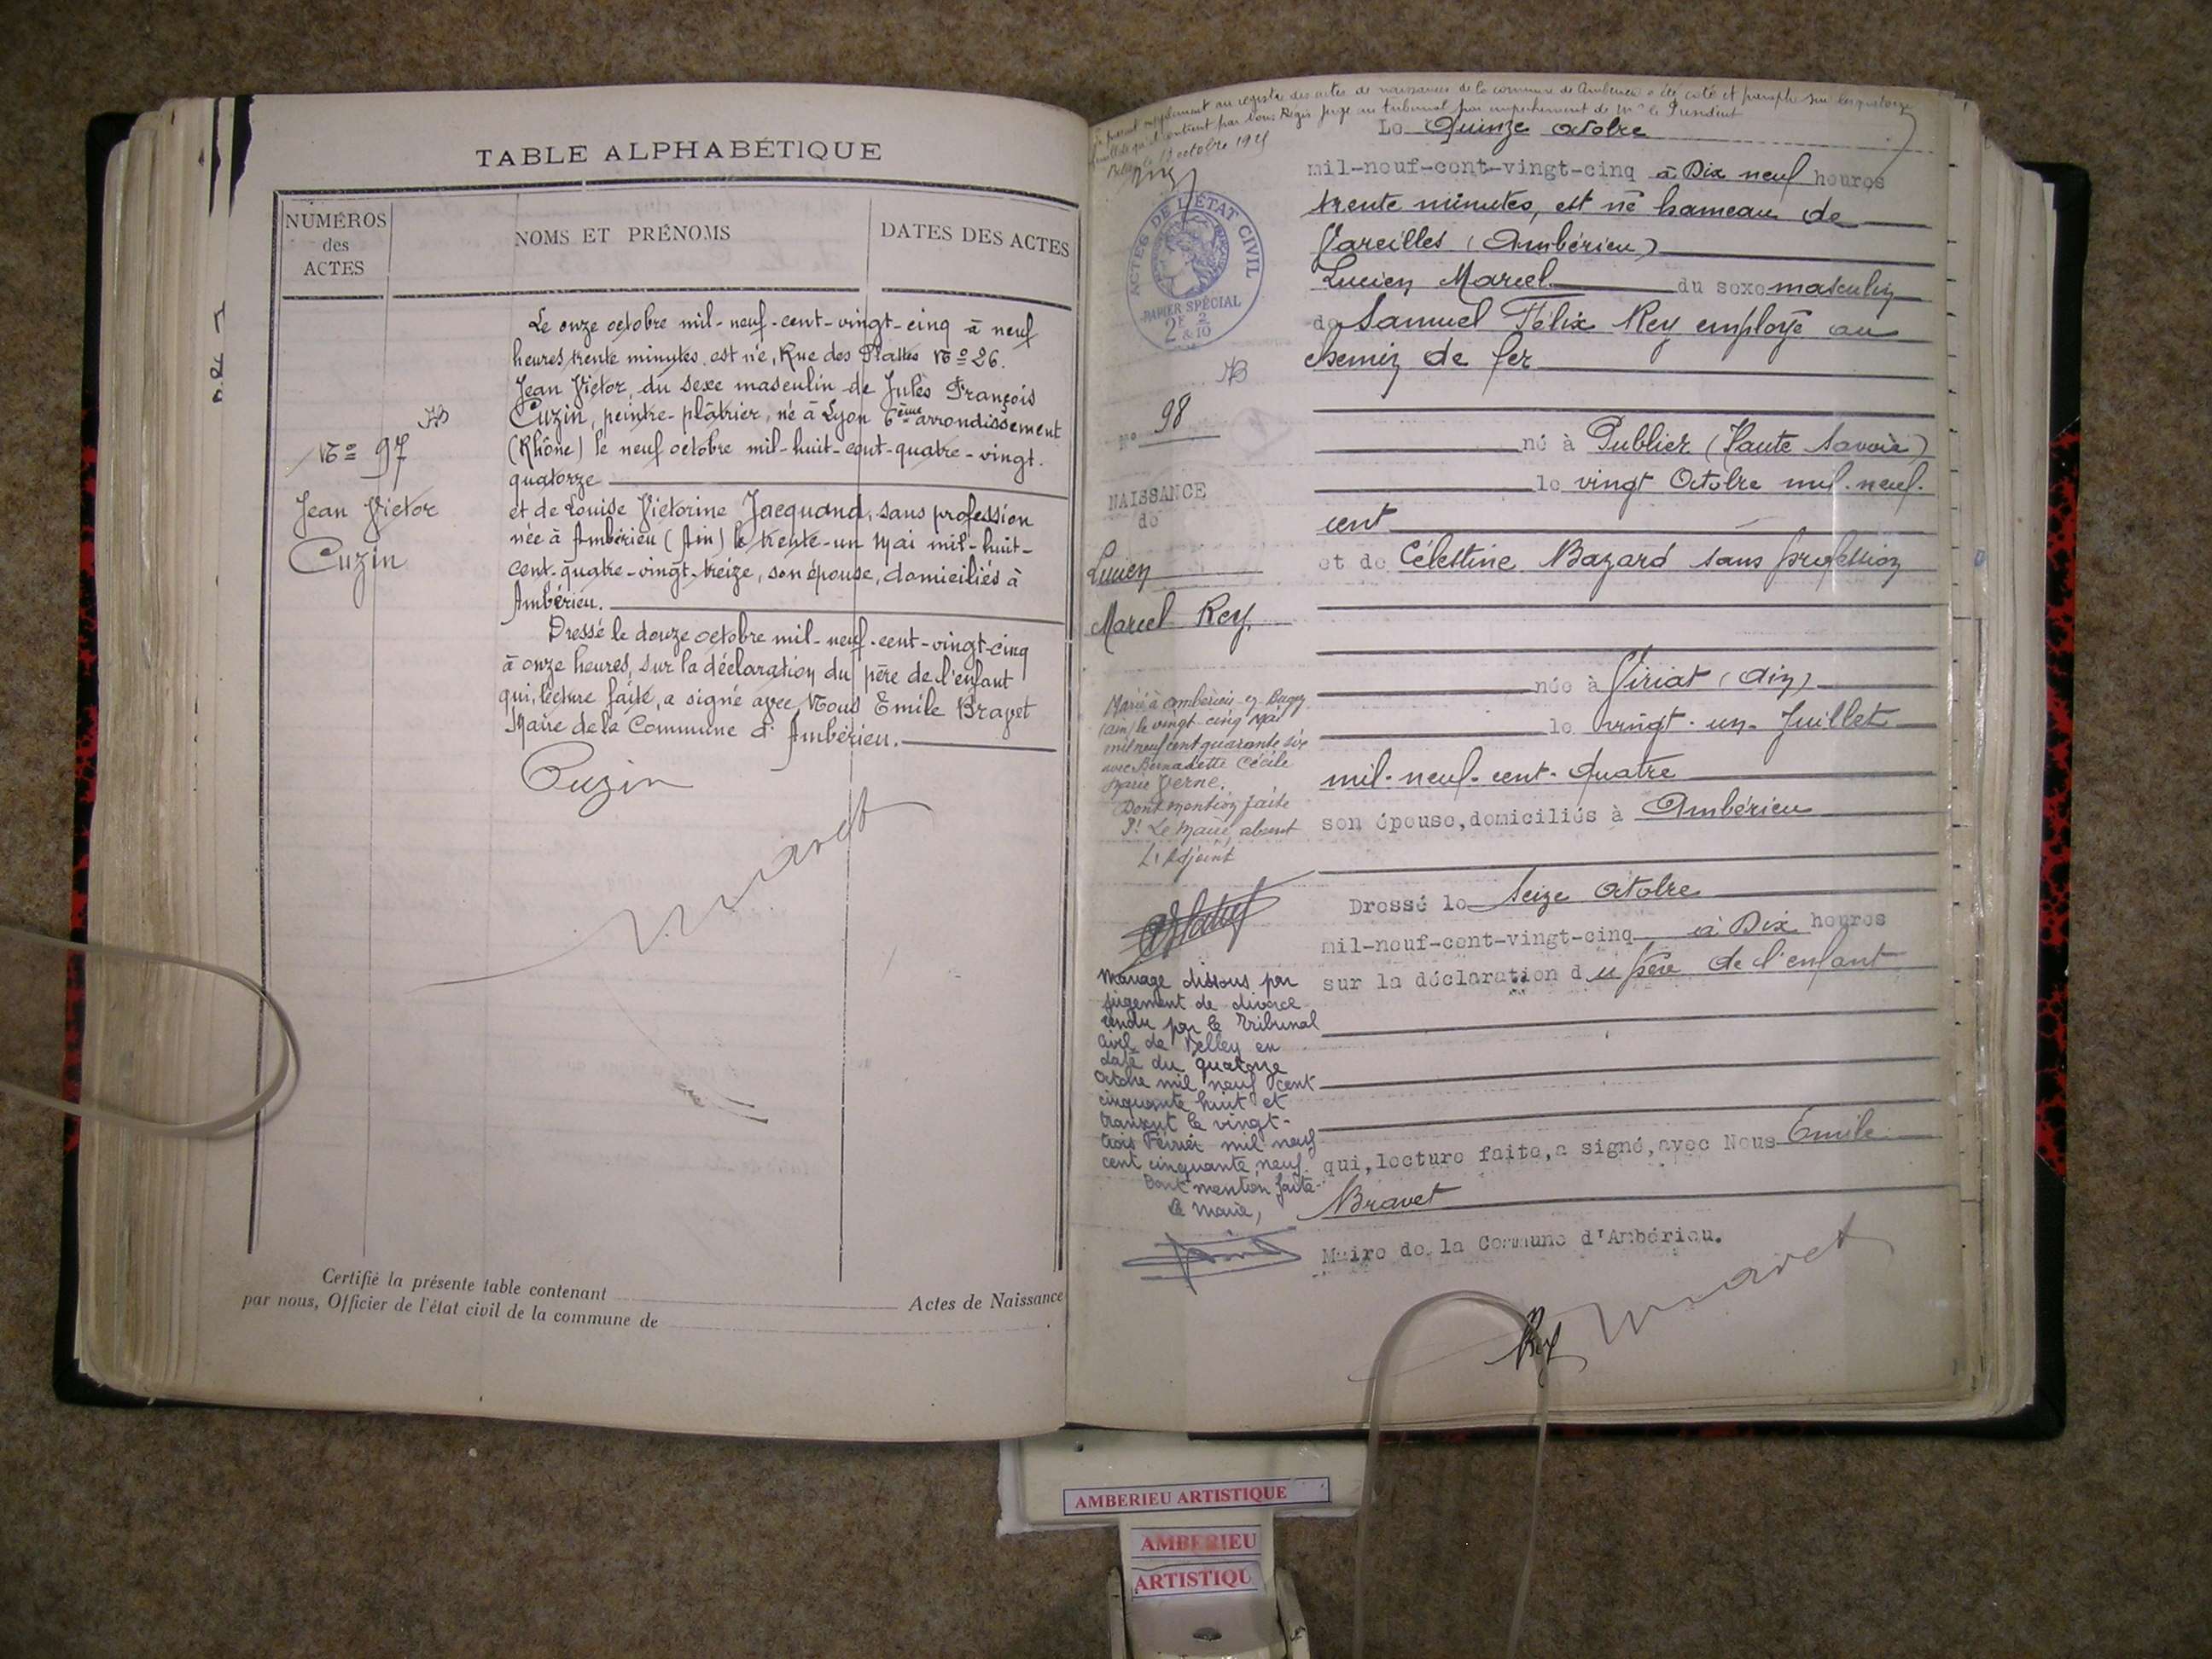 TABLE ALPHABÉTIQUE
NUMÉROS
des
ACTES
NOMS ET PRÉNOMS
DATES DES ACTES
Le onze octobre mil-neuf-cent-vingt-cinq à neuf
heures trente minutes est né, Rue des Plattes No 26.
Jean Victor, du sexe masculin de Jules François
Cuzin, peintre-plâtrier, né à Lyon 6ème arrondissement
(Rhône) le neuf octobre mil-huit-cent-quatre-vingt-
quatorze
et de Louise Victorine Jacquand, sans profession
née à Ambérieu (Ain) le trente-un Mai mil-huit-
cent-quatre-vingt-treize, son épouse, domiciliés à
Ambérieu.
Dressé le douze octobre mil-neuf-cent-vingt-cinq
à onze heures, sur la déclaration du père de l'enfant
qui, lecture faite, a signé avec Nous Emile Bravet
Maire de la Commune d'Ambérieu.
No 97
Jean Victor
Cuzin
Cuzin
Bravet
Certifié la présente table contenant
Actes de Naissance
par nous, Officier de l'état civil de la commune de
Le présent supplément au registre des actes de naissances de la commune de Ambérieu a été coté et paraphé sur les quatorze
feuillets qu'il contient par Nous Régis Juge au tribunal par empêchement de Mr le Président
Belley le 13 octobre 1925
ACTES DE L'ÉTAT CIVIL
PAPIER SPÉCIAL
2F 2
& 10
No 98
NAISSANCE
de
Lucien
Marcel Rey
Le Quinze octobre
mil-neuf-cent-vingt-cinq à Dix neuf heures
trente minutes, est né hameau de
Vareilles (Ambérieu)
Lucien Marcel du sexe masculin
de Samuel Félix Rey employé au
chemin de fer
né à Publier (Haute Savoie)
le vingt Octobre mil-neuf-
cent
et de Célestine Bazard sans profession
née à Viriat (Ain)
le vingt-un-Juillet
mil-neuf-cent-quatre
son épouse, domiciliés à Ambérieu
Dressé le Seize Octobre
mil-neuf-cent-vingt-cinq à Dix heures
sur la déclaration du père de l'enfant
qui, lecture faite, a signé, avec Nous Emile
Bravet
Maire de la Commune d'Ambérieu.
Rey
Bravet
Marié à Ambérieu en Bugey
(Ain) le vingt cinq Mai
mil neuf cent quarante six
avec Bernadette Cécile
Marie Verne.
Dont mention faite
Pr Le Maire, absent
L'Adjoint
Mariage dissous par
jugement de divorce
rendu par le Tribunal
civil de Belley en
date du quatorze
octobre mil neuf cent
cinquante huit et
transcrit le vingt-
trois Février mil neuf
cent cinquante neuf.
Dont mention faite
Le Maire,
AMBERIEU ARTISTIQUE
AMBERIEU
ARTISTIQU